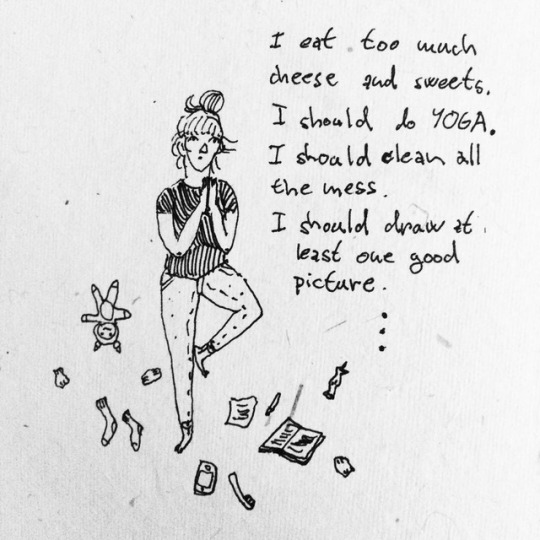 I eat too much
cheese and sweets.
I should do YOGA.
I should clean all
the mess.
I should draw at
least one good
picture.